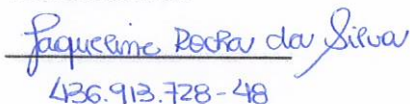 Jaqueline Rocha da Silva
436.913.728-48